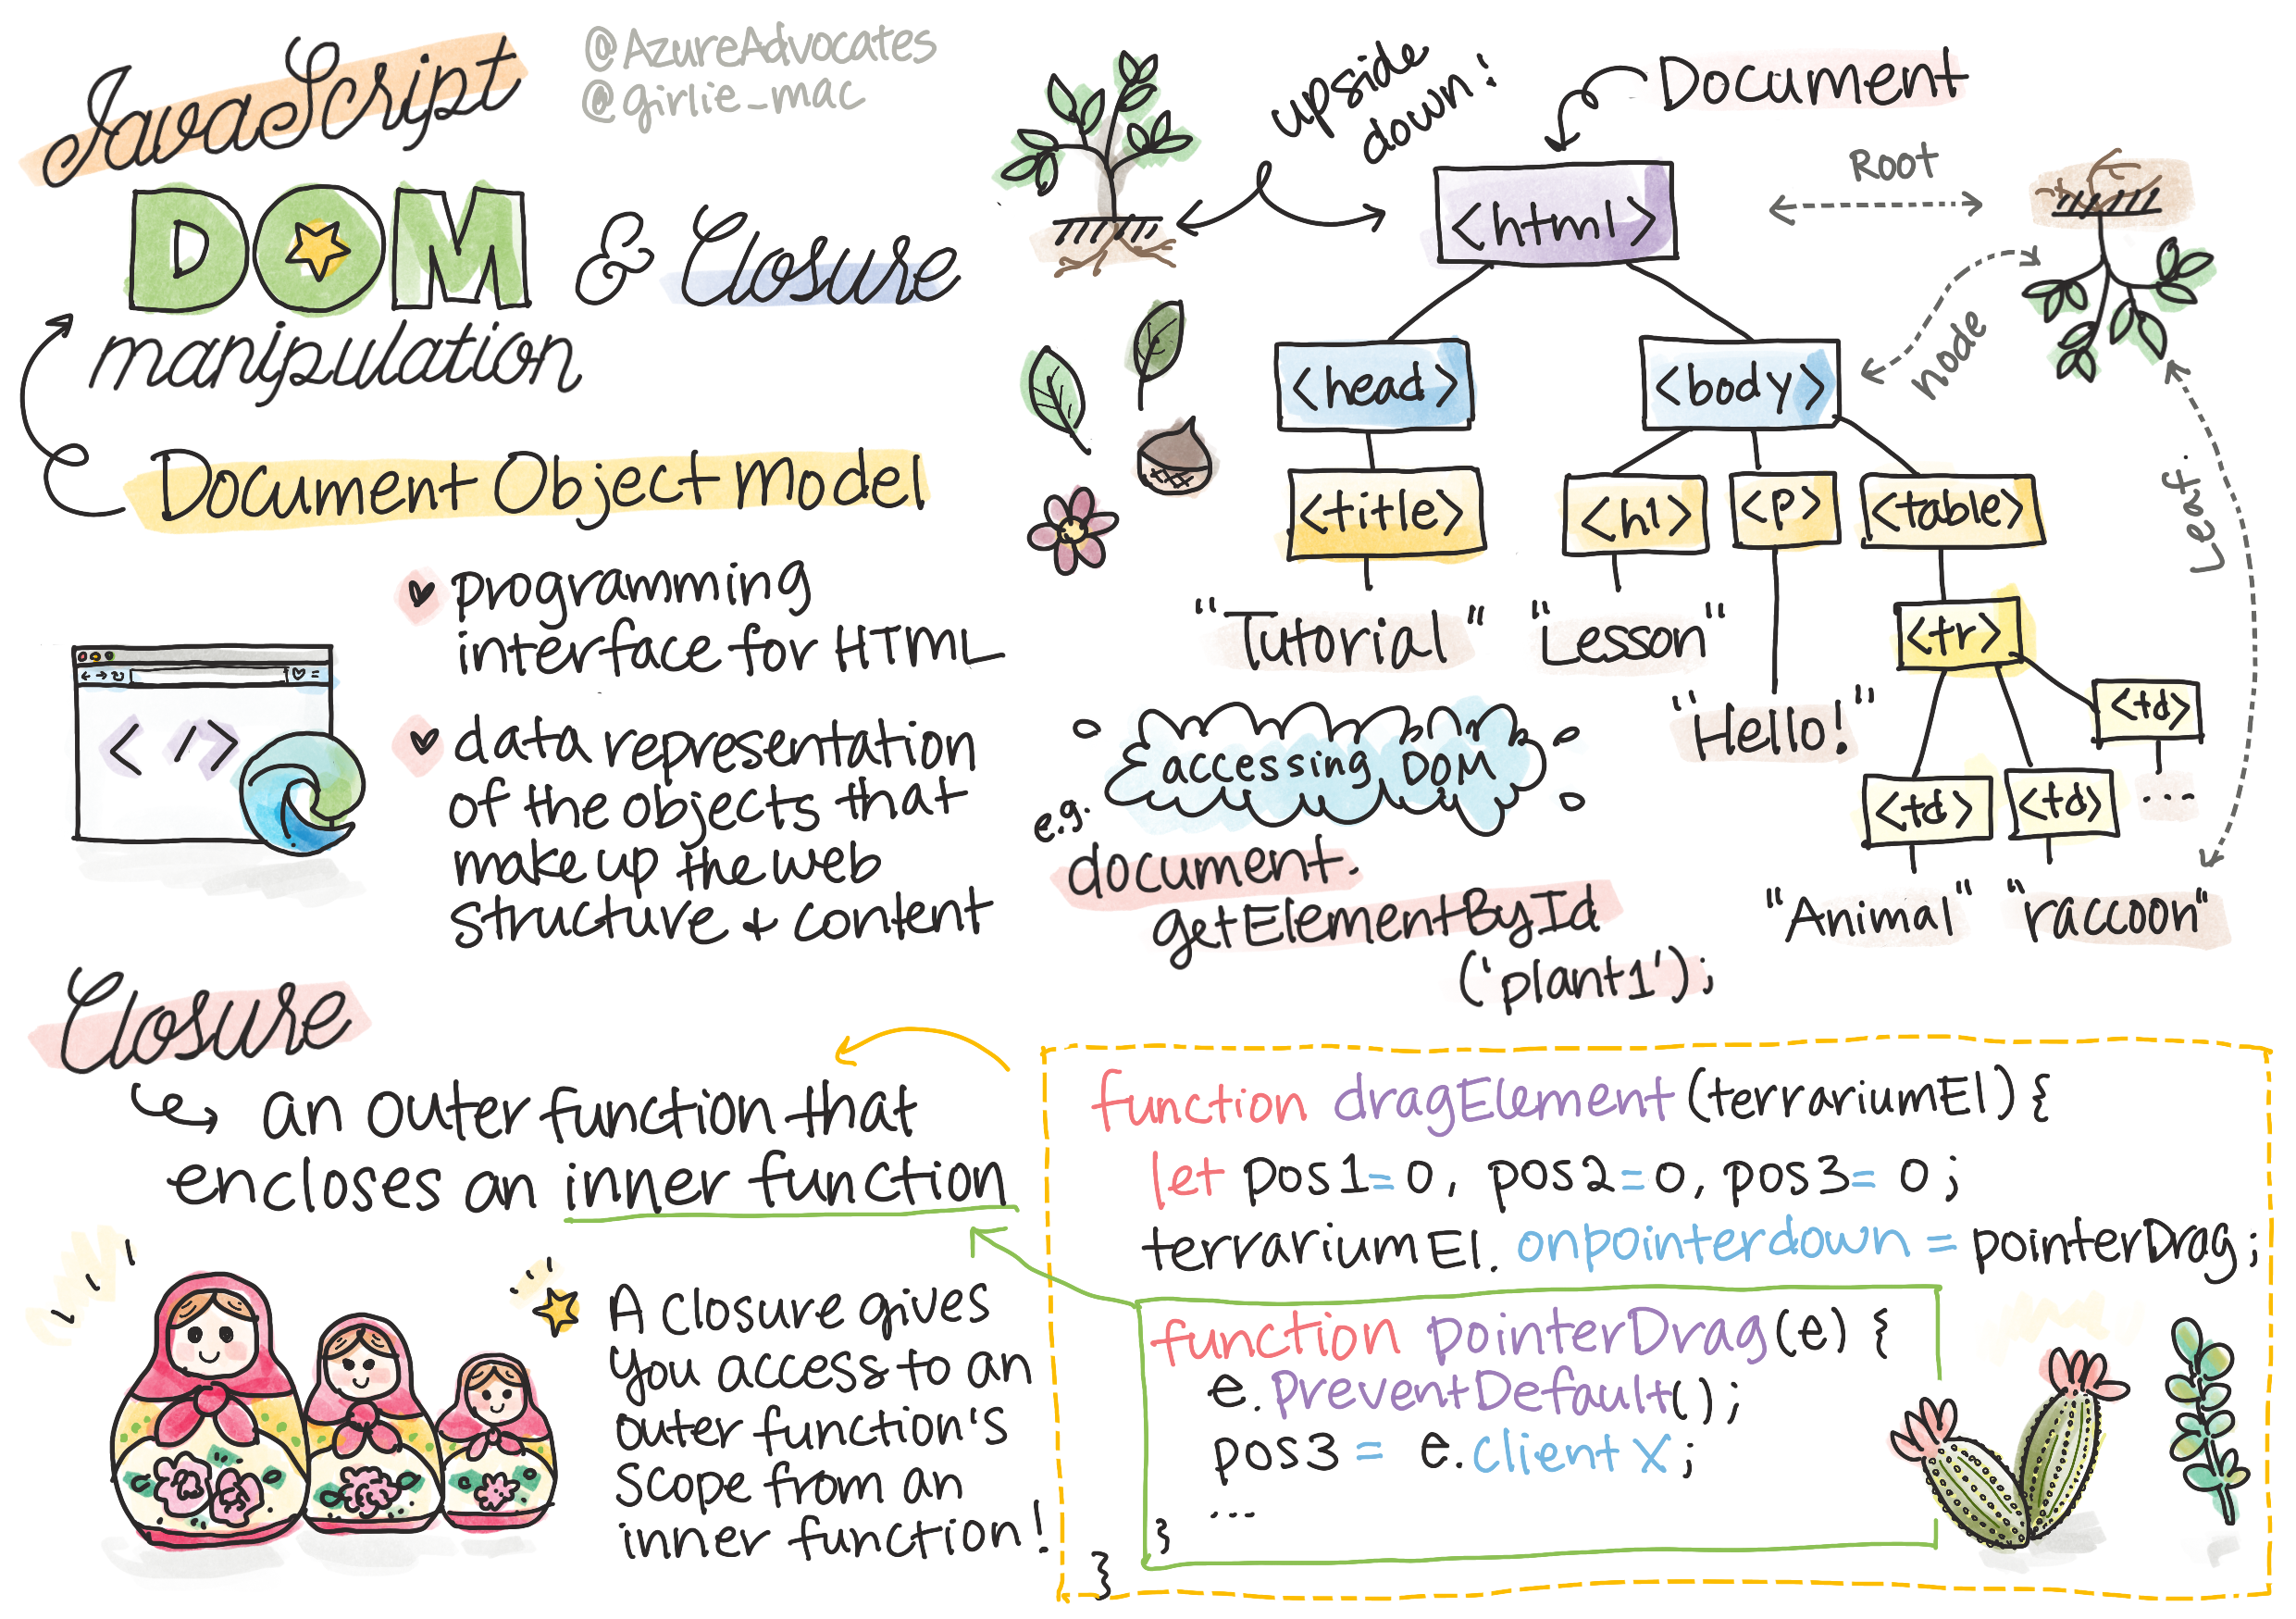 JavaScript
DOM
& Closure
manipulation
@AzureAdvocates
@girlie_mac
Document Object Model
programming
interface for HTML
data representation
of the objects that
make up the web
structure & content
</>
upside
down!
Document
Root
node
Leaf
<html>
<head>
<body>
<title>
<h1>
<p>
<table>
"Tutorial"
"Lesson"
<tr>
"Hello!"
<td>
<td>
<td>
...
"Animal"
"raccoon"
accessing DOM
e.g.
document.
getElementById
('plant1');
Closure
an outer function that
encloses an inner function
A closure gives
you access to an
outer function's
scope from an
inner function!
function dragElement (terrariumEl) {
let pos1=0, pos2=0, pos3= 0;
terrariumEl. onpointerdown = pointerDrag;
function pointerDrag(e) {
e.preventDefault();
pos3 = e.clientX;
...
}
}